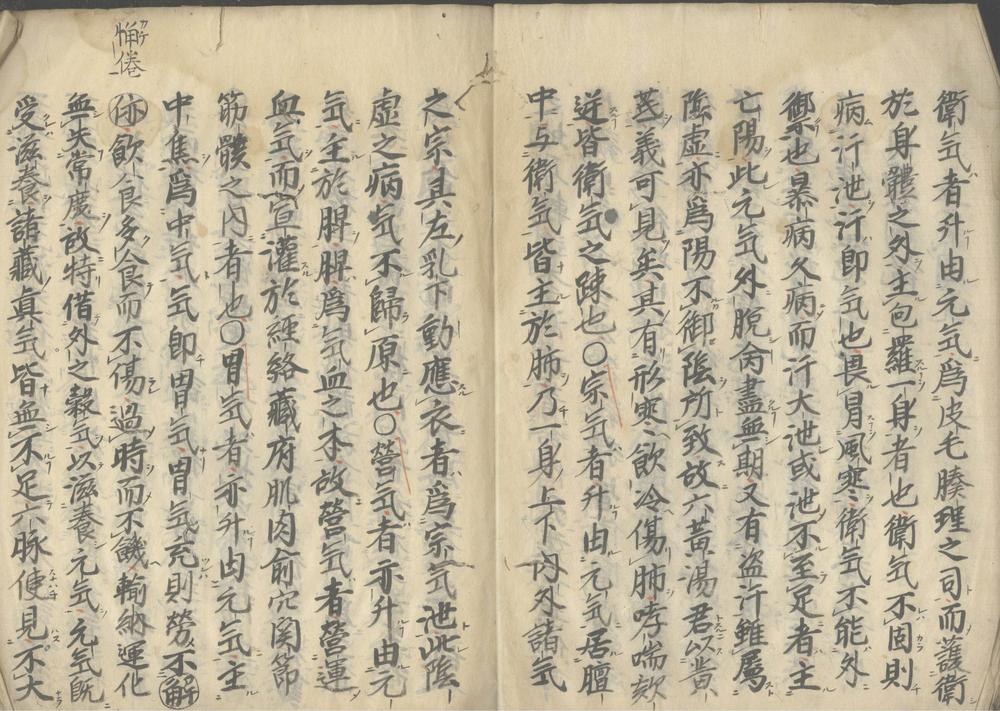 衛気者升由元気爲皮毛腠理之司而護衛
於身體之外主包羅一身者也衛気不固則
病汗泄汗即気也畏冒風寒衛気不能外
禦也暴病久病而汗大泄或泄不至足者主
亡陽此元気外脫病盡無期又有盗汗雖属
陰虚亦爲陽不御陰所致故六黄湯君以黄
芪義可見矣其有形寒飲冷傷肺哮喘欬
逆皆衛気之踈也〇宗気者升由元気居膻
中与衛気皆主於肺乃一身上下内外諸気
之宗其左乳下動應衣者爲宗気泄此陰
虚之病気不歸原也〇營気者亦升由元
気主於脾脾爲気血之本故營気者營運
血気而宣灌於経絡藏府肌肉俞穴関節
筋髓之内者也〇胃気者亦升由元気主
中焦爲中気気即胃気胃気充則勞不解
㑊飲食多食而不傷過時而不饑輸納運化
無失常度故特借外之穀気以滋養元気元気既
受滋養諸藏真気皆無不足六脉便見不大
懈倦
カケ